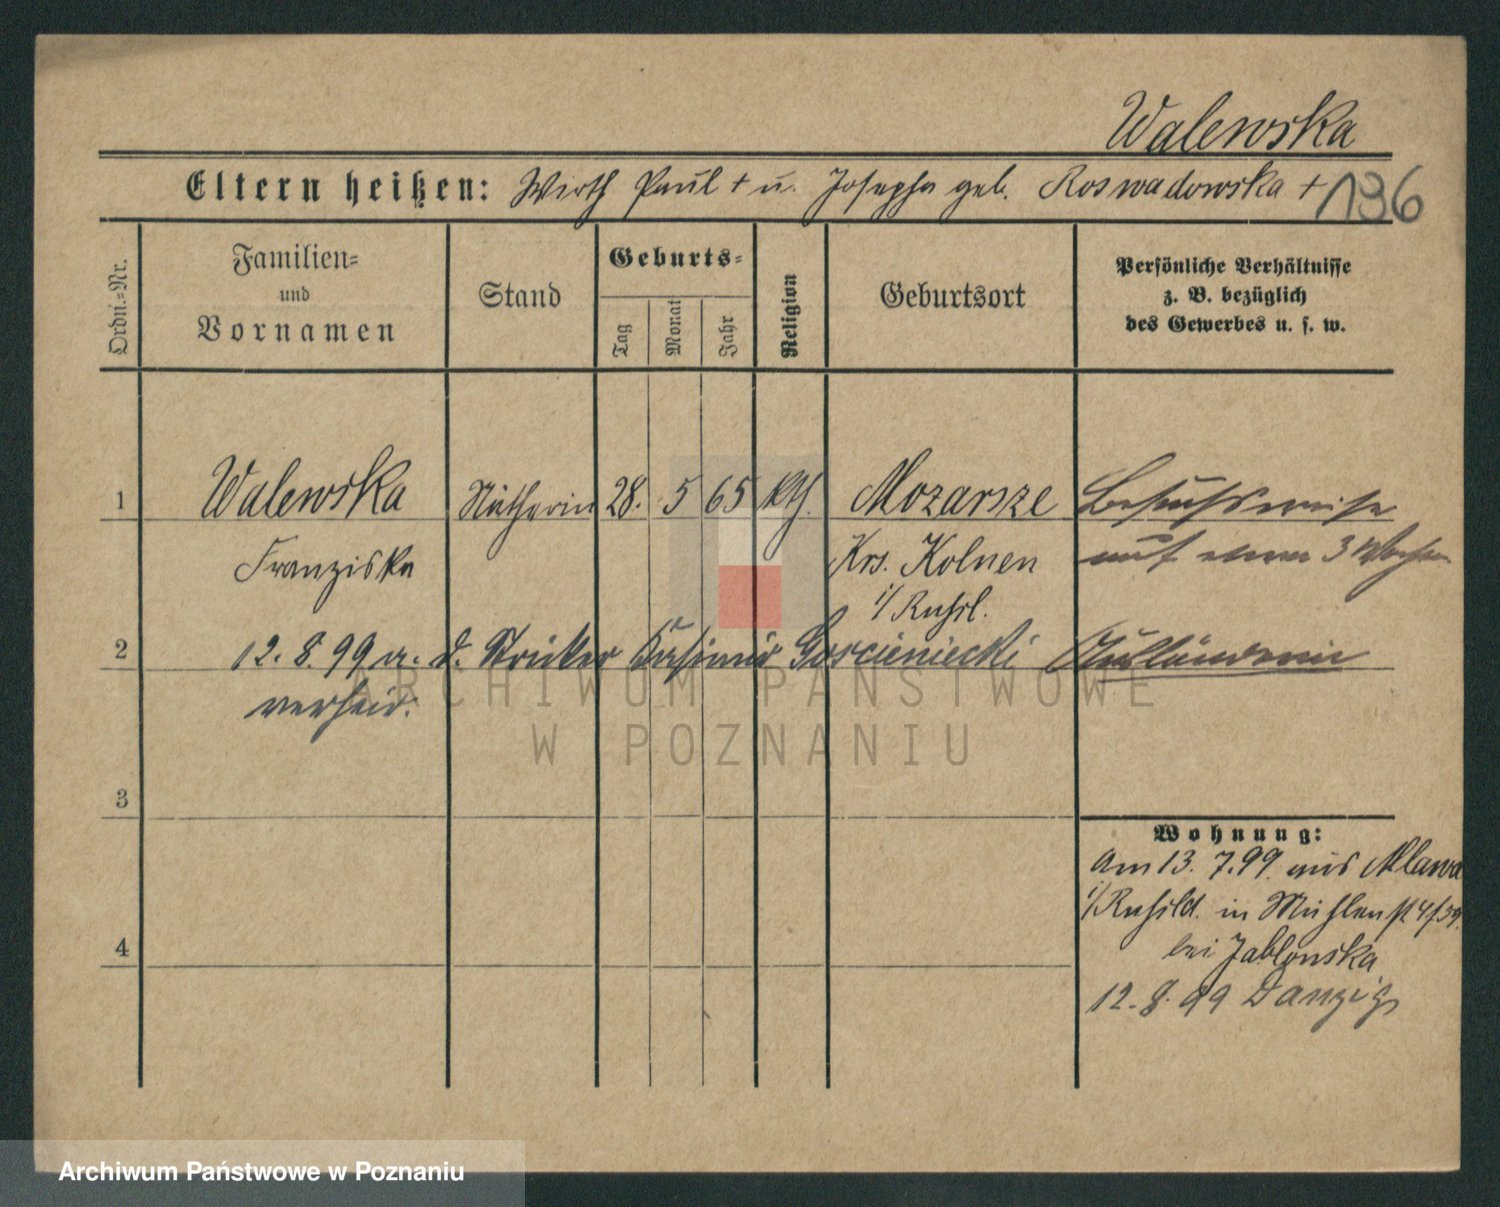 Walewska
Eltern heißen: Wirth Paul + u. Josepha geb. Roswadowska +
136
Ordn.-Nr.
Familien- und Vornamen
Stand
Geburts-
Tag
Monat
Jahr
Religion
Geburtsort
Persönliche Verhältnisse
z. B. bezüglich
des Gewerbes u. s. w.
1 Walewska Nätherin 28. 5 65 kth. Mozarsze Besuchsweise
Franziska Krs. Kolnen auf etwa 3 Wochen
i/ Russl.
2 12. 8. 99 a. d. Stricker Kasimir Goscieniecki Ausländerin
verheir.
ARCHIWUM PAŃSTWOWE
W POZNANIU
3
Wohnung:
Am 13. 7. 99. aus Mlawa
i/Russld. in Mühlenst 4/59.
4
bei Jablonska
12. 8. 99 Danzig
Archiwum Państwowe w Poznaniu